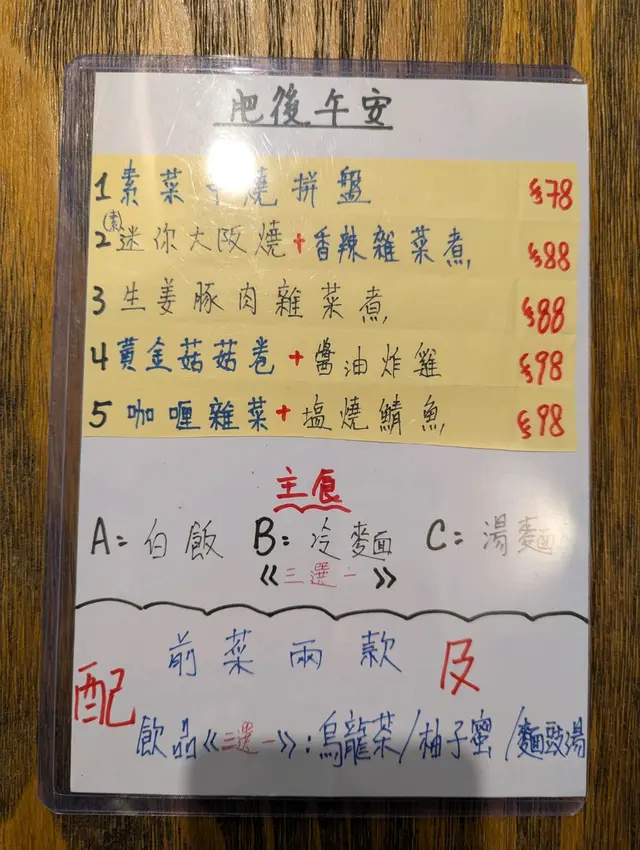 肥後午安
1 素菜串燒拼盤 $78
2 (素) 迷你大阪燒+香辣雜菜煮 $88
3 生姜豚肉雜菜煮 $88
4 黃金菇菇卷+醬油炸雞 $98
5 咖喱雜菜+塩燒鯖魚 $98
主食
A= 白飯 B: 冷麵 C: 湯麵
《三選一》
配 前菜兩款 及
飲品《三選一》:烏龍茶/柚子蜜/麵豉湯